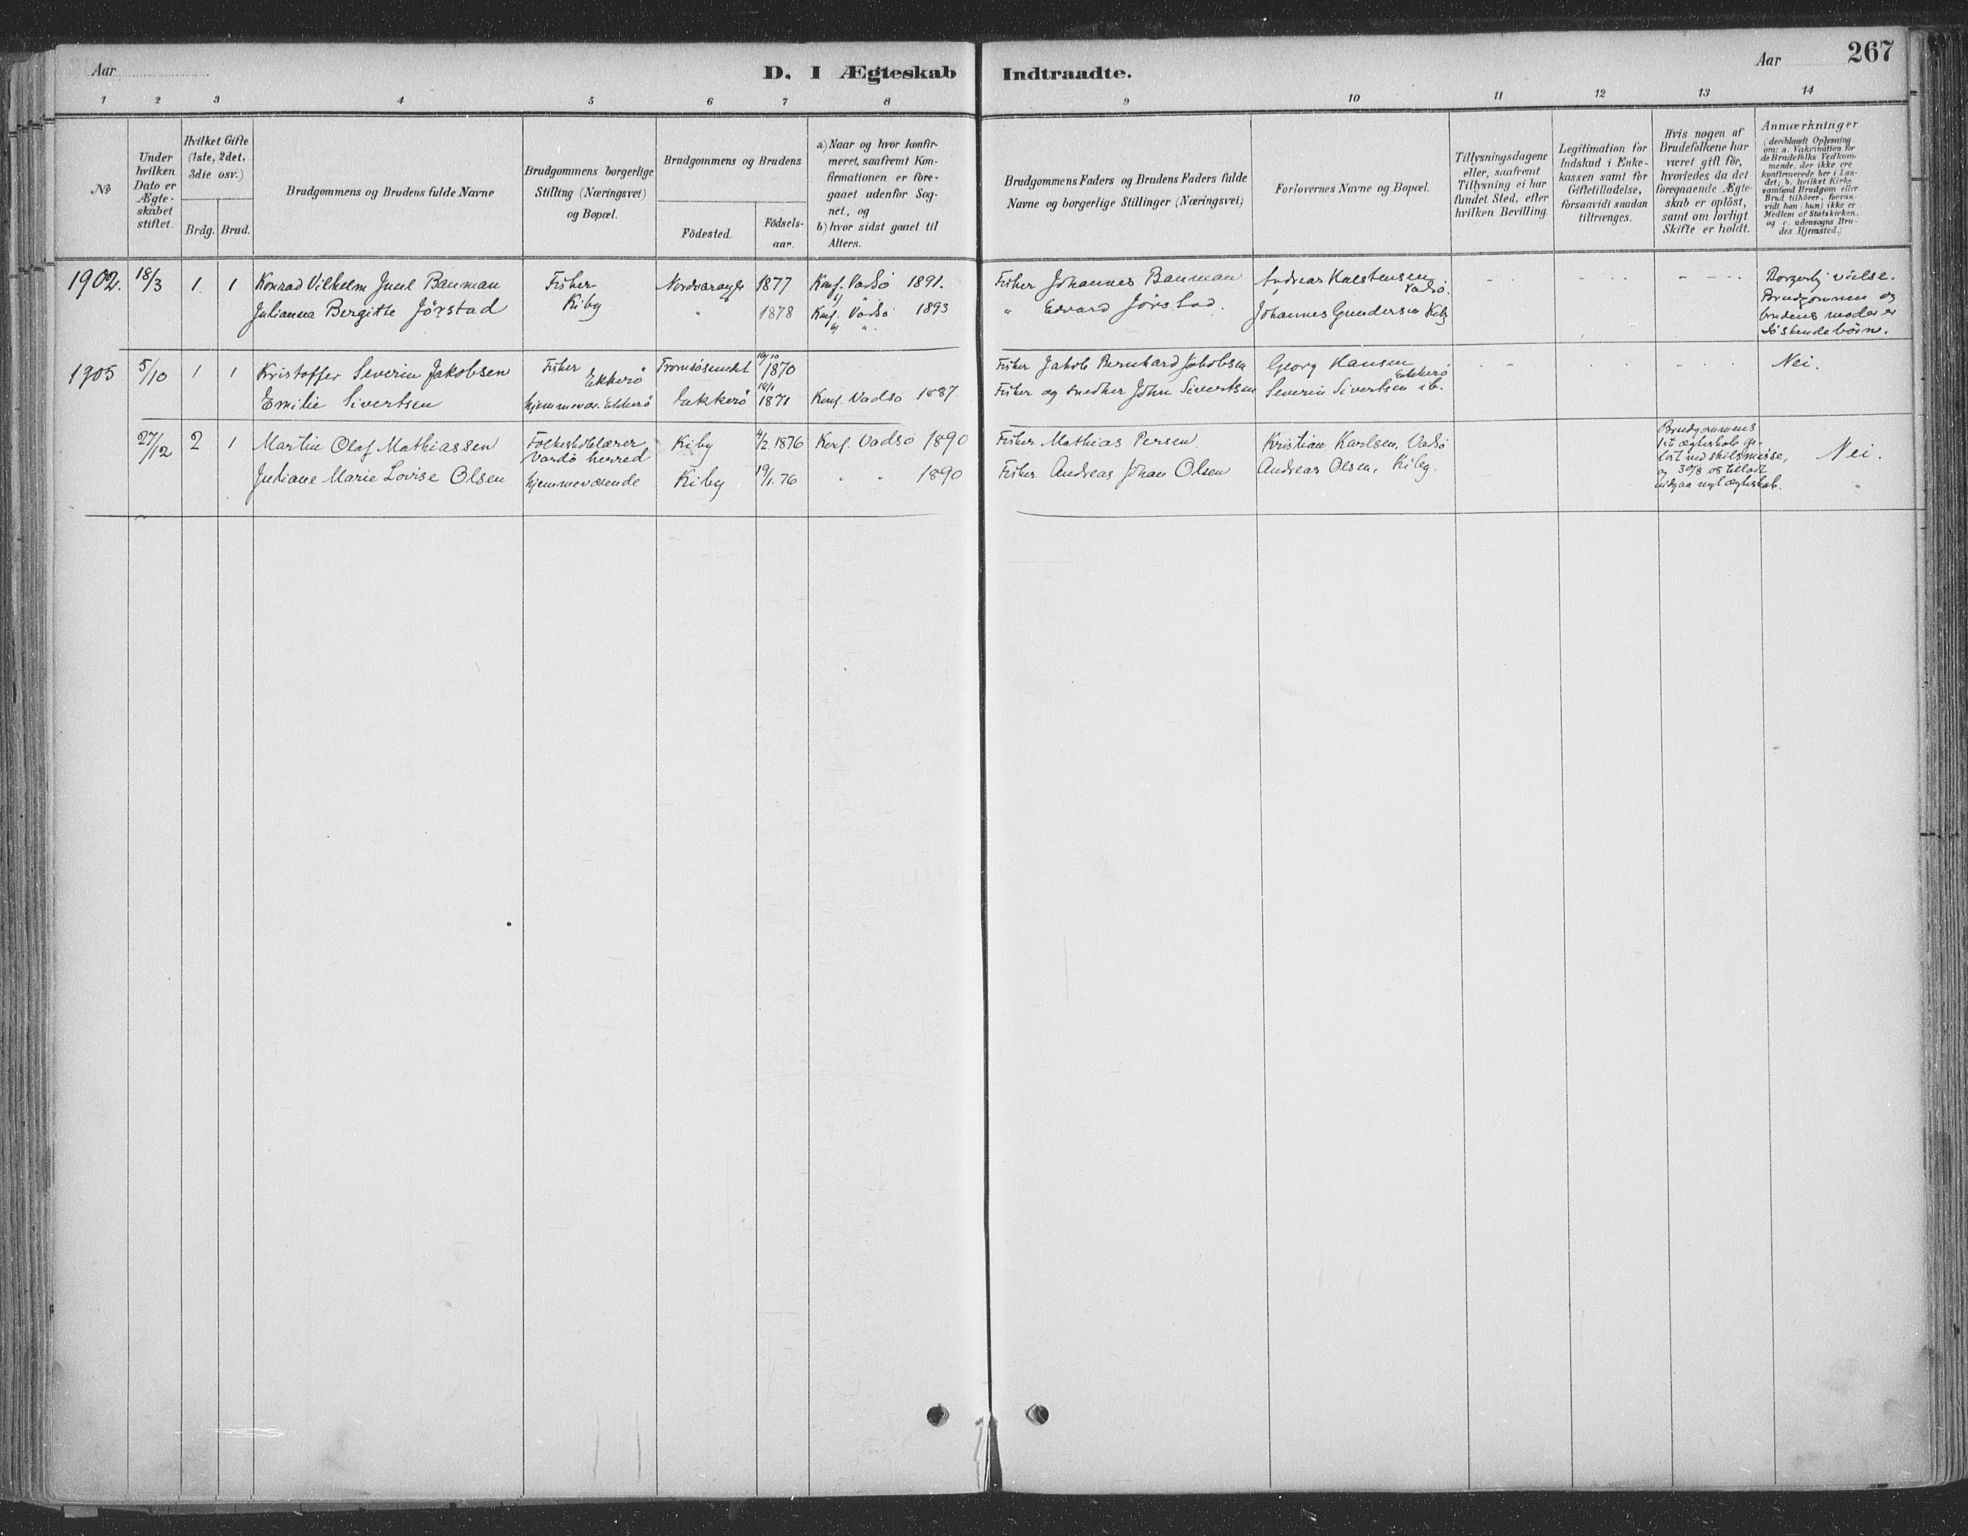 Aar
D. I Ægteskab
Indtraadte.
Aar
267
1 2 3 4 5 6 7 8
9 10 11 12 13 14
No
Under hvilken Dato er Ægteskabet stiftet.
Hvilket Gifte (1ste, 2det, 3die osv.)
Brdg. Brud.
Brudgommens og Brudens fulde Navne
Brudgommens borgerlige Stilling (Næringsvei) og Bopæl.
Brudgommens og Brudens
Födested.
Födsels-aar.
a) Naar og hvor konfirmeret, saafremt Konfirmationen er foregaaet udenfor Sognet, og
b) hvor sidst gaaet til Alters.
Brudgommens Faders og Brudens Faders fulde Navne og borgerlige Stillinger (Næringsvei)
Forlovernes Navne og Bopæl.
Tillysningsdagene eller, saafremt Tillysning ei har fundet Sted, efter hvilken Bevilling.
Legitimation for Indskud i Enkekassen samt for Giftetilladelse, forsaavidt saadan tiltrænges.
Hvis nogen af Brudefolkene har været gift för, hvorledes da det foregaaende Ægteskab er oplöst, samt om lovligt Skifte er holdt.
Anmærkninger (deriblandt Oplysning om: a. Vakcination for de Brudefolks Vedkommende, der ikke ere konfirmerede her i Landet; b. hvilket Kirkesamfund Brudgom eller Brud tilhörer, forsaavidt han (hun) ikke er Medlem af Statskirken, og c. udensogns Brudes Hjemsted.)
1902. 18/3 1 1 Konrad Vilhelm Juul Bauman Fisker Kiby Nordvaranger 1877 Konf. Vadsö 1891. Fisker Johannes Bauman Andreas Karstensen Vadsö. Borgerlig vielse.
Julianna Bergitte Jörstad " 1878 Konf. Vadsö 1893 " Edvard Jörstad. Johannes Gundersen Kiby Brudgommen og brudens moder er söskendebörn.
1905 5/10 1 1 Kristoffer Severin Jakobsen Fisker Ekkerö Tromsösundet 1870 Fisker Jakob Bernhard Jakobsen Georg Hansen Ekkerö Nei.
Emilie Sivertsen hjemmevær. Ekkerö Ekkerö 1871 Konf. Vadsö 1887. Fisker og snedker John Sivertsen Severin Sivertsen ib.
27/12 2 1 Martin Olaf Mathiassen Folkeskolelærer Vardö herred Kiby 4/2 1876 Konf. Vadsö 1890 Fisker Mathias Persen. Kristian Karlsen, Vadsö Brudgommens 1st ægteskab ved skilsmisse, 30/8 05 tilladt indgaa nyt ægteskab. Nei.
Juliane Marie Lovise Olsen hjemmeværende Kiby 19/1. 76 " " 1890 Fisker Andreas Johan Olsen Andreas Olsen, Kiby.